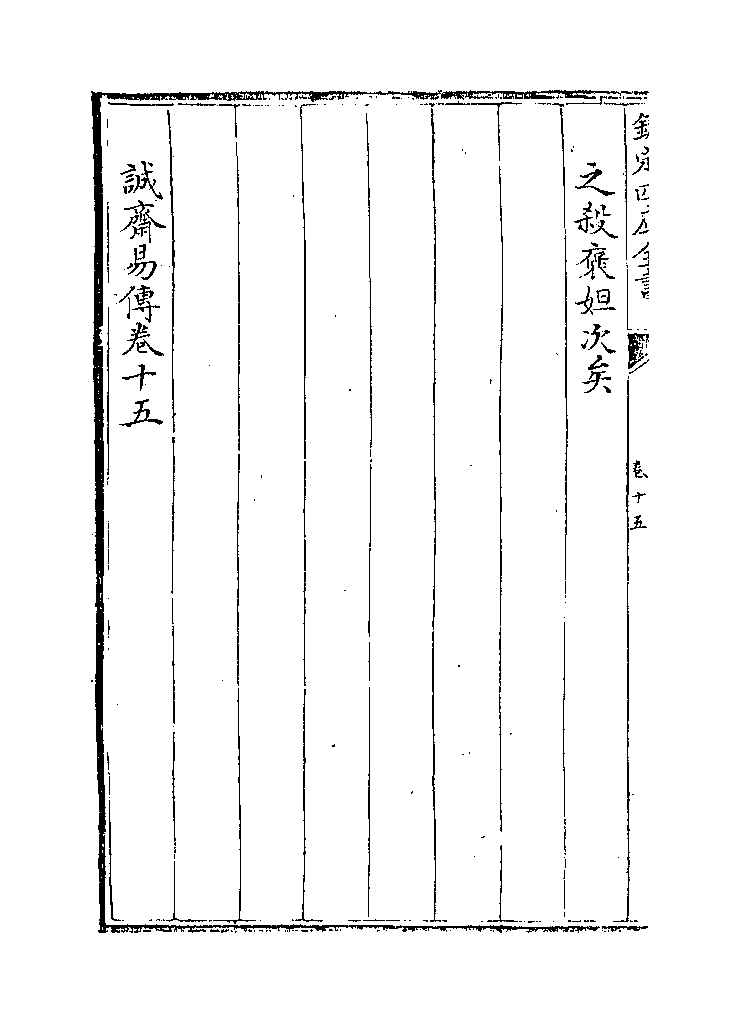 欽定四庫全書
卷十五
之殺褒妲次矣
誠齋易傳卷十五